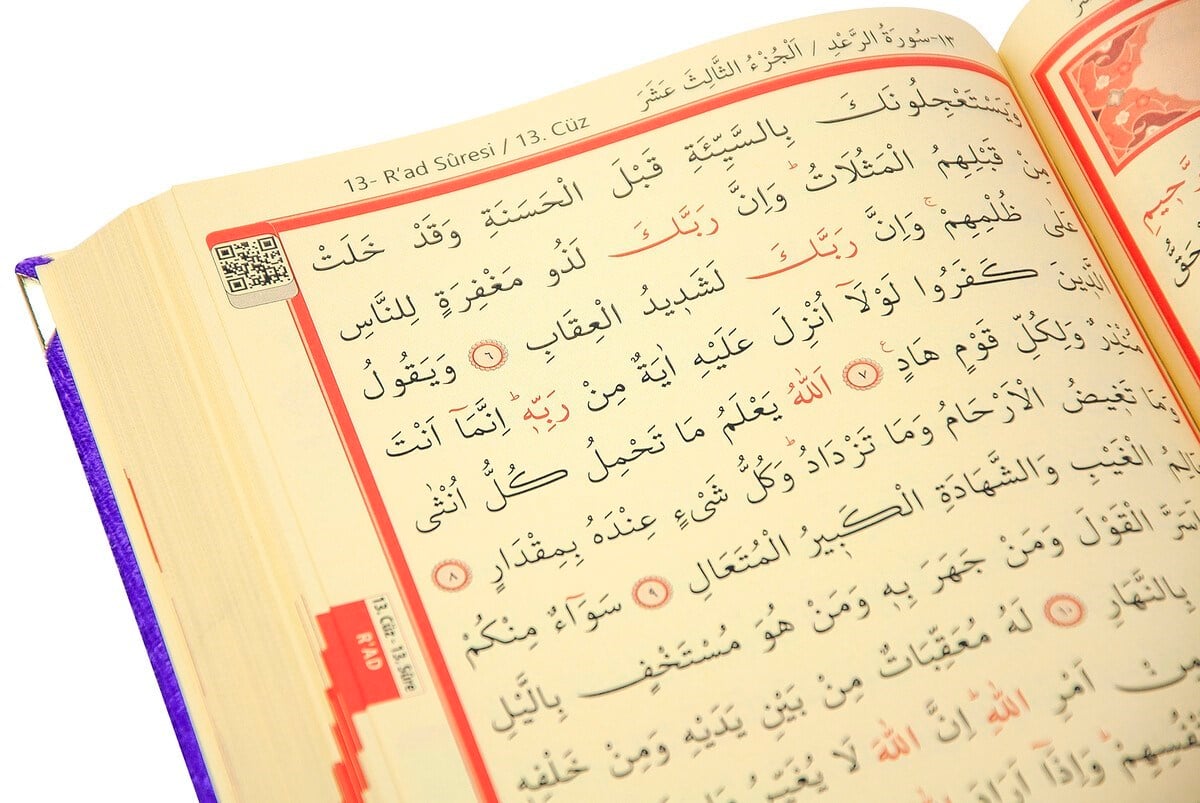 ١٣-سُورَةُ الرَّعْدِ / اَلْجُزْءُ الثَّالِثَ عَشَرَ
13- R'ad Sûresi / 13. Cüz
وَيَسْتَعْجِلُونَكَ بِالسَّيِّئَةِ قَبْلَ الْحَسَنَةِ وَقَدْ خَلَتْ
مِنْ قَبْلِهِمُ الْمَثُلَاتُ وَاِنَّ رَبَّكَ لَذُو مَغْفِرَةٍ لِلنَّاسِ
عَلٰى ظُلْمِهِمْ وَاِنَّ رَبَّكَ لَشَدِيدُ الْعِقَابِ ٦ وَيَقُولُ
الَّذِينَ كَفَرُوا لَوْلَٓا اُنْزِلَ عَلَيْهِ اٰيَةٌ مِنْ رَبِّهِ اِنَّمَٓا اَنْتَ
مُنْذِرٌ وَلِكُلِّ قَوْمٍ هَادٍ ٧ اَللّٰهُ يَعْلَمُ مَا تَحْمِلُ كُلُّ اُنْثٰى
وَمَا تَغِيضُ الْاَرْحَامُ وَمَا تَزْدَادُ وَكُلُّ شَيْءٍ عِنْدَهُ بِمِقْدَارٍ ٨
عَالِمُ الْغَيْبِ وَالشَّهَادَةِ الْكَبِيرُ الْمُتَعَالِ ٩ سَوَٓاءٌ مِنْكُمْ
الْقَوْلَ وَمَنْ جَهَرَ بِهِ وَمَنْ هُوَ مُسْتَخْفٍ بِالَّيْلِ
بِالنَّهَارِ ١٠ لَهُ مُعَقِّبَاتٌ مِنْ بَيْنِ يَدَيْهِ وَمِنْ خَلْفِهِ
مِنْ اَمْرِ اللّٰهِ اِنَّ اللّٰهَ لَا يُغَيِّرُ
وَاِذَٓا اَرَادَ
13. Cüz - 13. Sûre
R'AD